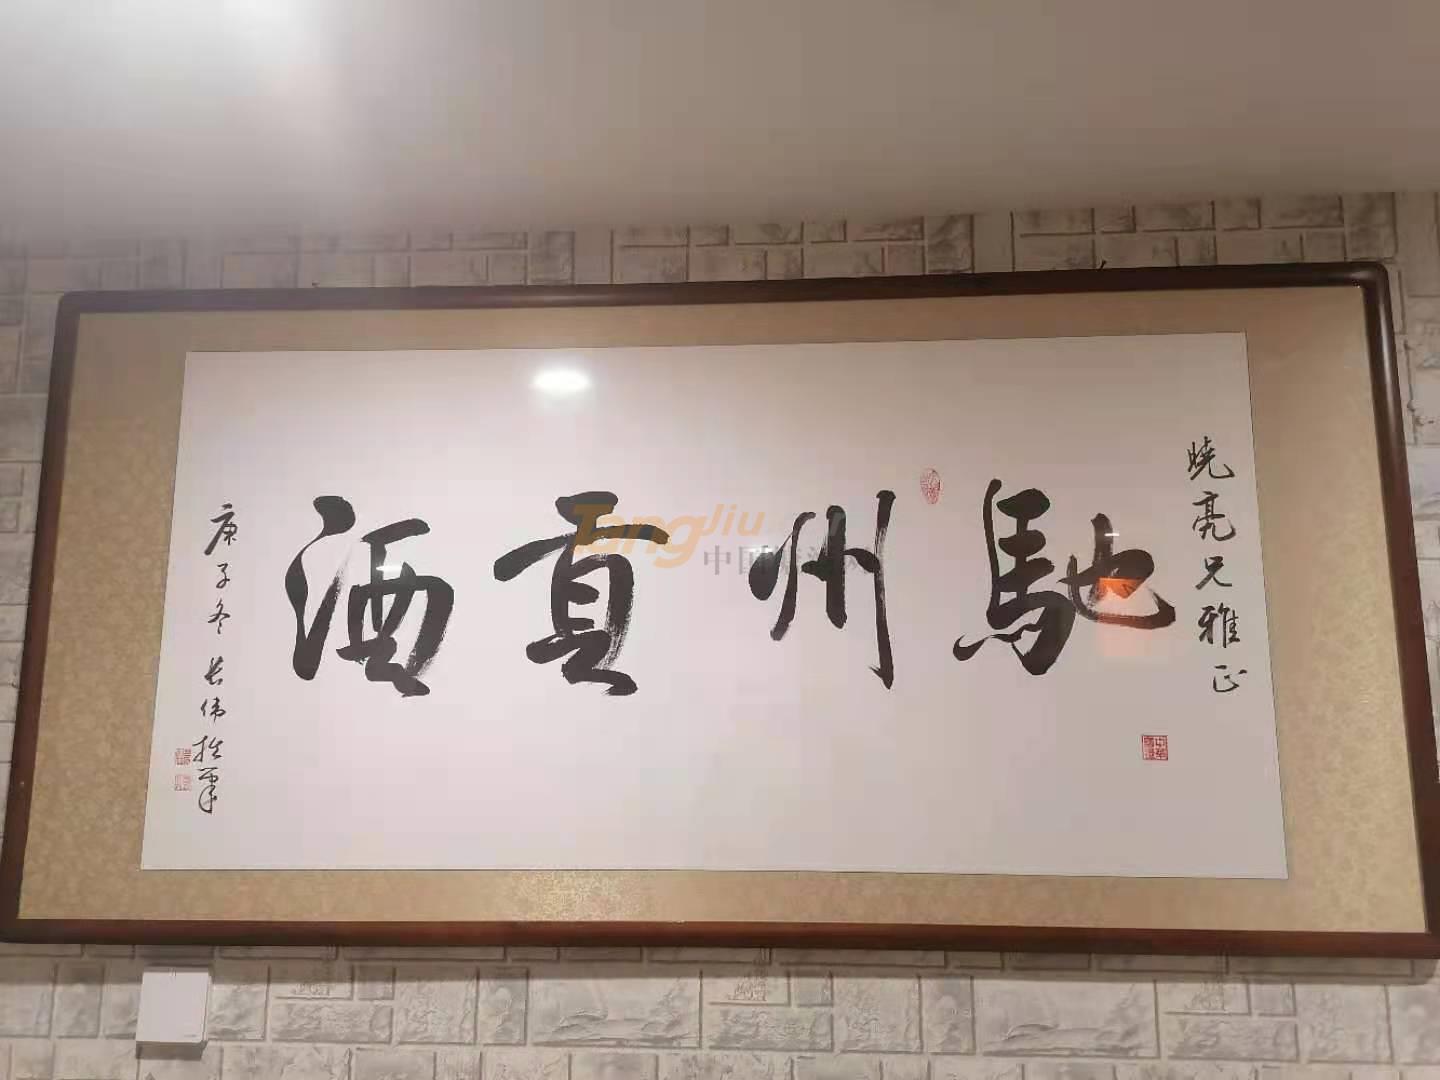 曉亮兄雅正
馳州貢酒
庚子冬长伟拙筆
TangJiu